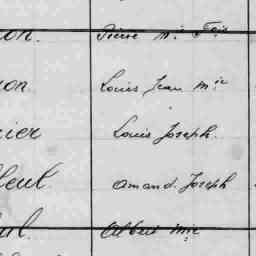 on. Pierre M.ie Fois
on Louis Jean M.ie
ier Louis Joseph.
leul Amand. Joseph
ul. Albert M.ie